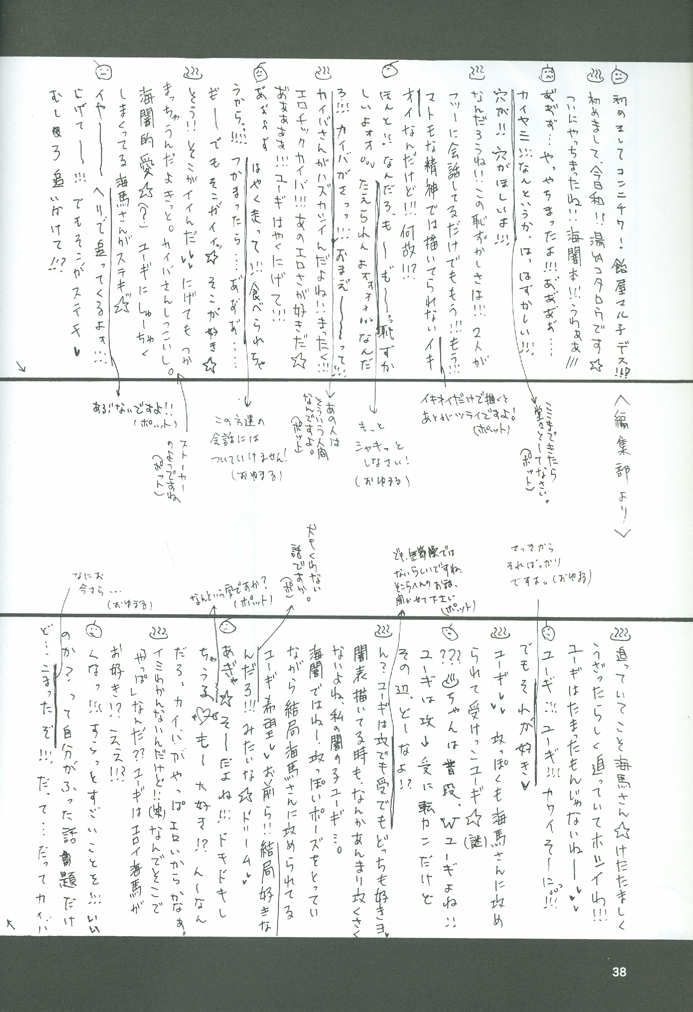 初めましてコンニチワ！飴屋マルチデス!!!
初めまして、今日和!!湯山コタロウです☆
ついにやっちまったね!!海闇本!!!うわぁぁ!!!
あああ…やっやちまったよ!!!あああぁ…
カイヤミ!!!なんというか、はっはずかしい!!!
穴が!!穴がほしいよ!!!
なんだろうね!!この恥ずかしさは!!!2人が
フツーに会話してるだけでももう!!!もう!!!
マトモな精神では描いてられないイキ
オイなんだけど!!!何故!!!?
ほんと!!なんだろ、もーもー~っ恥ずか
しいよォォ。。たえられんよォォォなんだ
ろ!!!カイバがさっっ!!!おまえーーって!!!
カイバさんがハズカシイんだよね!!まったく!!!
エロチックカイバ!!!あのエロさが好きだ☆
ああああ!!!ユーギはやくにげて!!!
あああ はやく走って!!!食べられちゃ
うから…!!!つかまったら…あああ…
ぎーでもそこがイイ☆そこが好き☆
そう!!そこがイイんだ♥♥にげてもつか
まっちゃうんだよきっと。カイバさんしつこいし。
海闇的愛☆(?)ユーギにしゅーちゃく
しまくってる海馬さんがステキ☆
イヤーーヘリで追ってくるよォ!!!
にげてー!!!でもそこがステキ♥
むしろ追いかけて!!?
＜編集部より＞
ここまできたら
堂々としてなさい。
(ポット)
イキオイだけで描くと
あとがツライですよ!
(ポット)
もっと
シャキっと
しなさい!
(おゆまる)
あの人は
そういう人間
なんですよ。
(ポット)
この方達の
会話には
ついていけません!
(おゆまる)
ストーカー
のようですね
(ポット)
あぶないですよ!!
(ポット)
さっきから
そればっかり
ですよ。(おゆまる)
でも、無節操では
ないらしいですね
そこら人のお話、
聞かせて下さい
(ポット)
大きくわない
話ですか。
なんという字ですか?
(ポット)
なにお
今さら…
(おゆまる)
追っていてこそ海馬さん☆けたたましく
うざったらしく追っていてホシイわ!!!
ユーギはたまったもんじゃないねー♥♥
ユーギ!!!ユーギ!!!カワイそーに!!!
でもそれが好き♥
ユーギ♥♥攻っぽくも海馬さんに攻め
られて受けっこユーギ☆(謎)
???ちゃんは普段、Wユーギよね!!
ユーギは攻→受に転カンだけど
その辺、どーなよ!?
ん?ユーギは攻でも受でもどっちも好きヨ。
闇表描いてる時も、なんかあんまり攻くさく
ないよね、私の闇の子ユーギ…。
海闇ではねー、攻っぽいポーズをとってい
ながら結局海馬さんに攻められてる
ユーギ希望♥お前ら!!結局好きな
んだろ!!!みたいな☆ドリーム♥
あぎゃ☆そーだよね!!!ドキドキし
ちゃうる♥もー大好き!?んーなん
だろ、カイバがやっぱエロいからかなぁ。
イミわかんないんだけど!!(笑)なんでそこで
やっぱしなんだ??ユーギはエロイ海馬が
お好き!?ええ!!?
くなっ!!!すらっとすごいことを!!!いい
のか?って自分がふった話題だけ
ど…こまったぞ!!!だって…だってカイバ
38